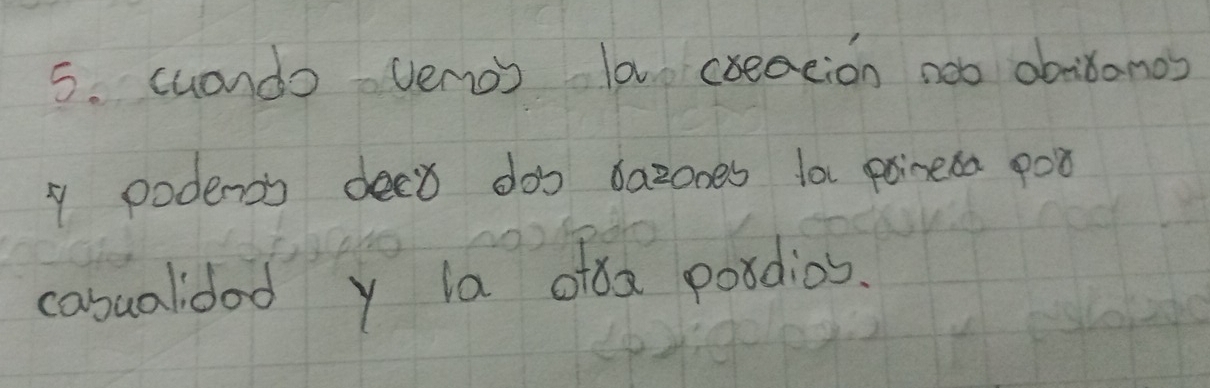 5. cuando vemos la creación nos abrixamos
y podemos decir dos razones la primera por
casualidad y la otra pordios.